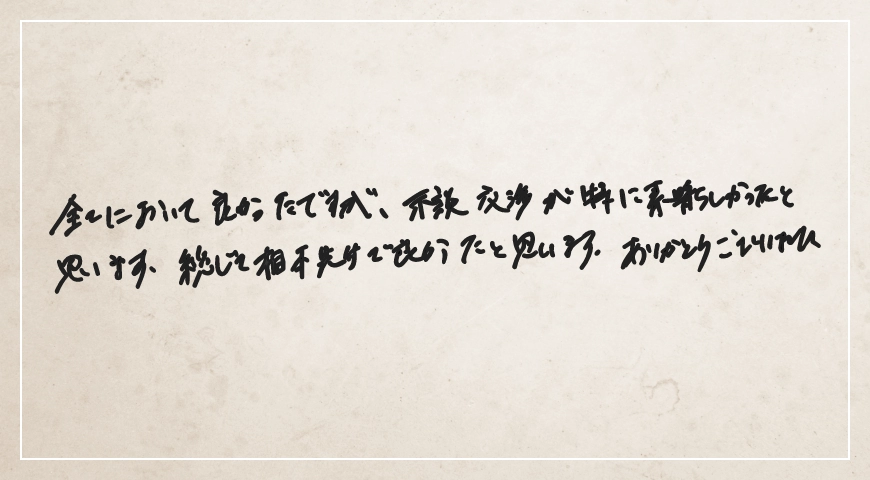 全てにおいて良かったですが、示談交渉が特に素晴らしかったと
思います。総じて相手先生で良かったと思います。ありがとうございました